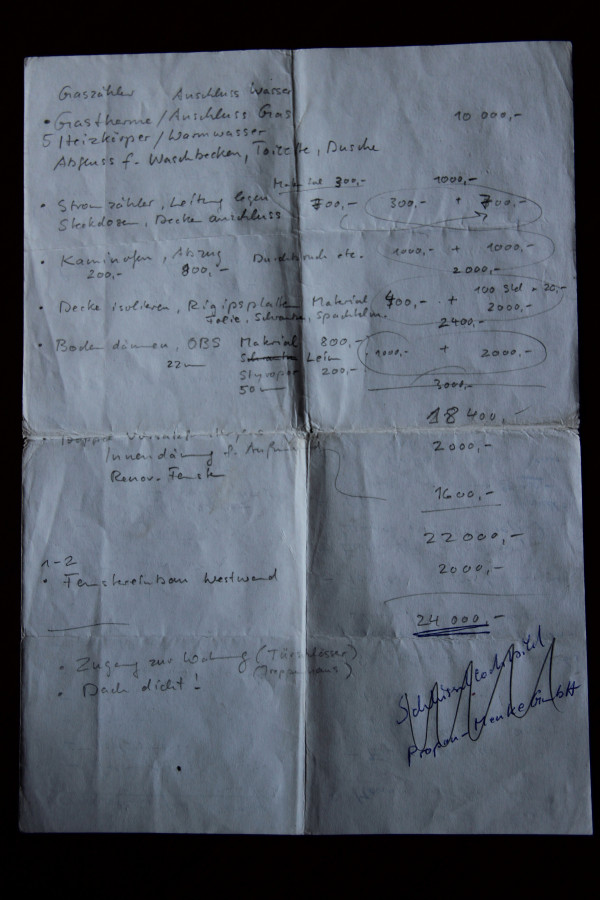 Gaszähler Anschluss Wasser
• Gastherme / Anschluss Gas 10 000,-
5 Heizkörper / Warmwasser
Abfluss f. Waschbecken, Toilette, Dusche
Material 300,- 1000,-
• Stromzähler, Leitung legen 700,- 300,- + 700,-
Steckdosen, Deckenanschluss
• Kaminofen, Abzug Durchbruch etc. 1000,- + 1000,-
200,- 800,- 2000,-
• Decke isolieren, Rigipsplatten Material 400,- + 100 Std = 20,-
Folie, Schrauben, Spachtelm. 2000,-
2400,-
• Boden dämmen, OBS Material 800,- 1000,- + 2000,-
22m Schrauben Leim
Styropor 200,-
50 m 3000,-
18 400,-
Innendämung 2000,-
Renov. Fenster
1600,-
22000,-
1-2 2000,-
• Fenstereinbau Westwand
24 000,-
• Zugang zur Wohnung (Türschlösser)
(Treppenhaus)
• Dach dicht!
Propan-Menke GmbH